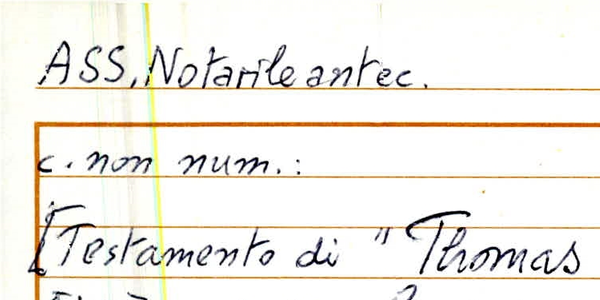 ASS, Notarile antec.
c. non num.:
[Testamento di "Thomas